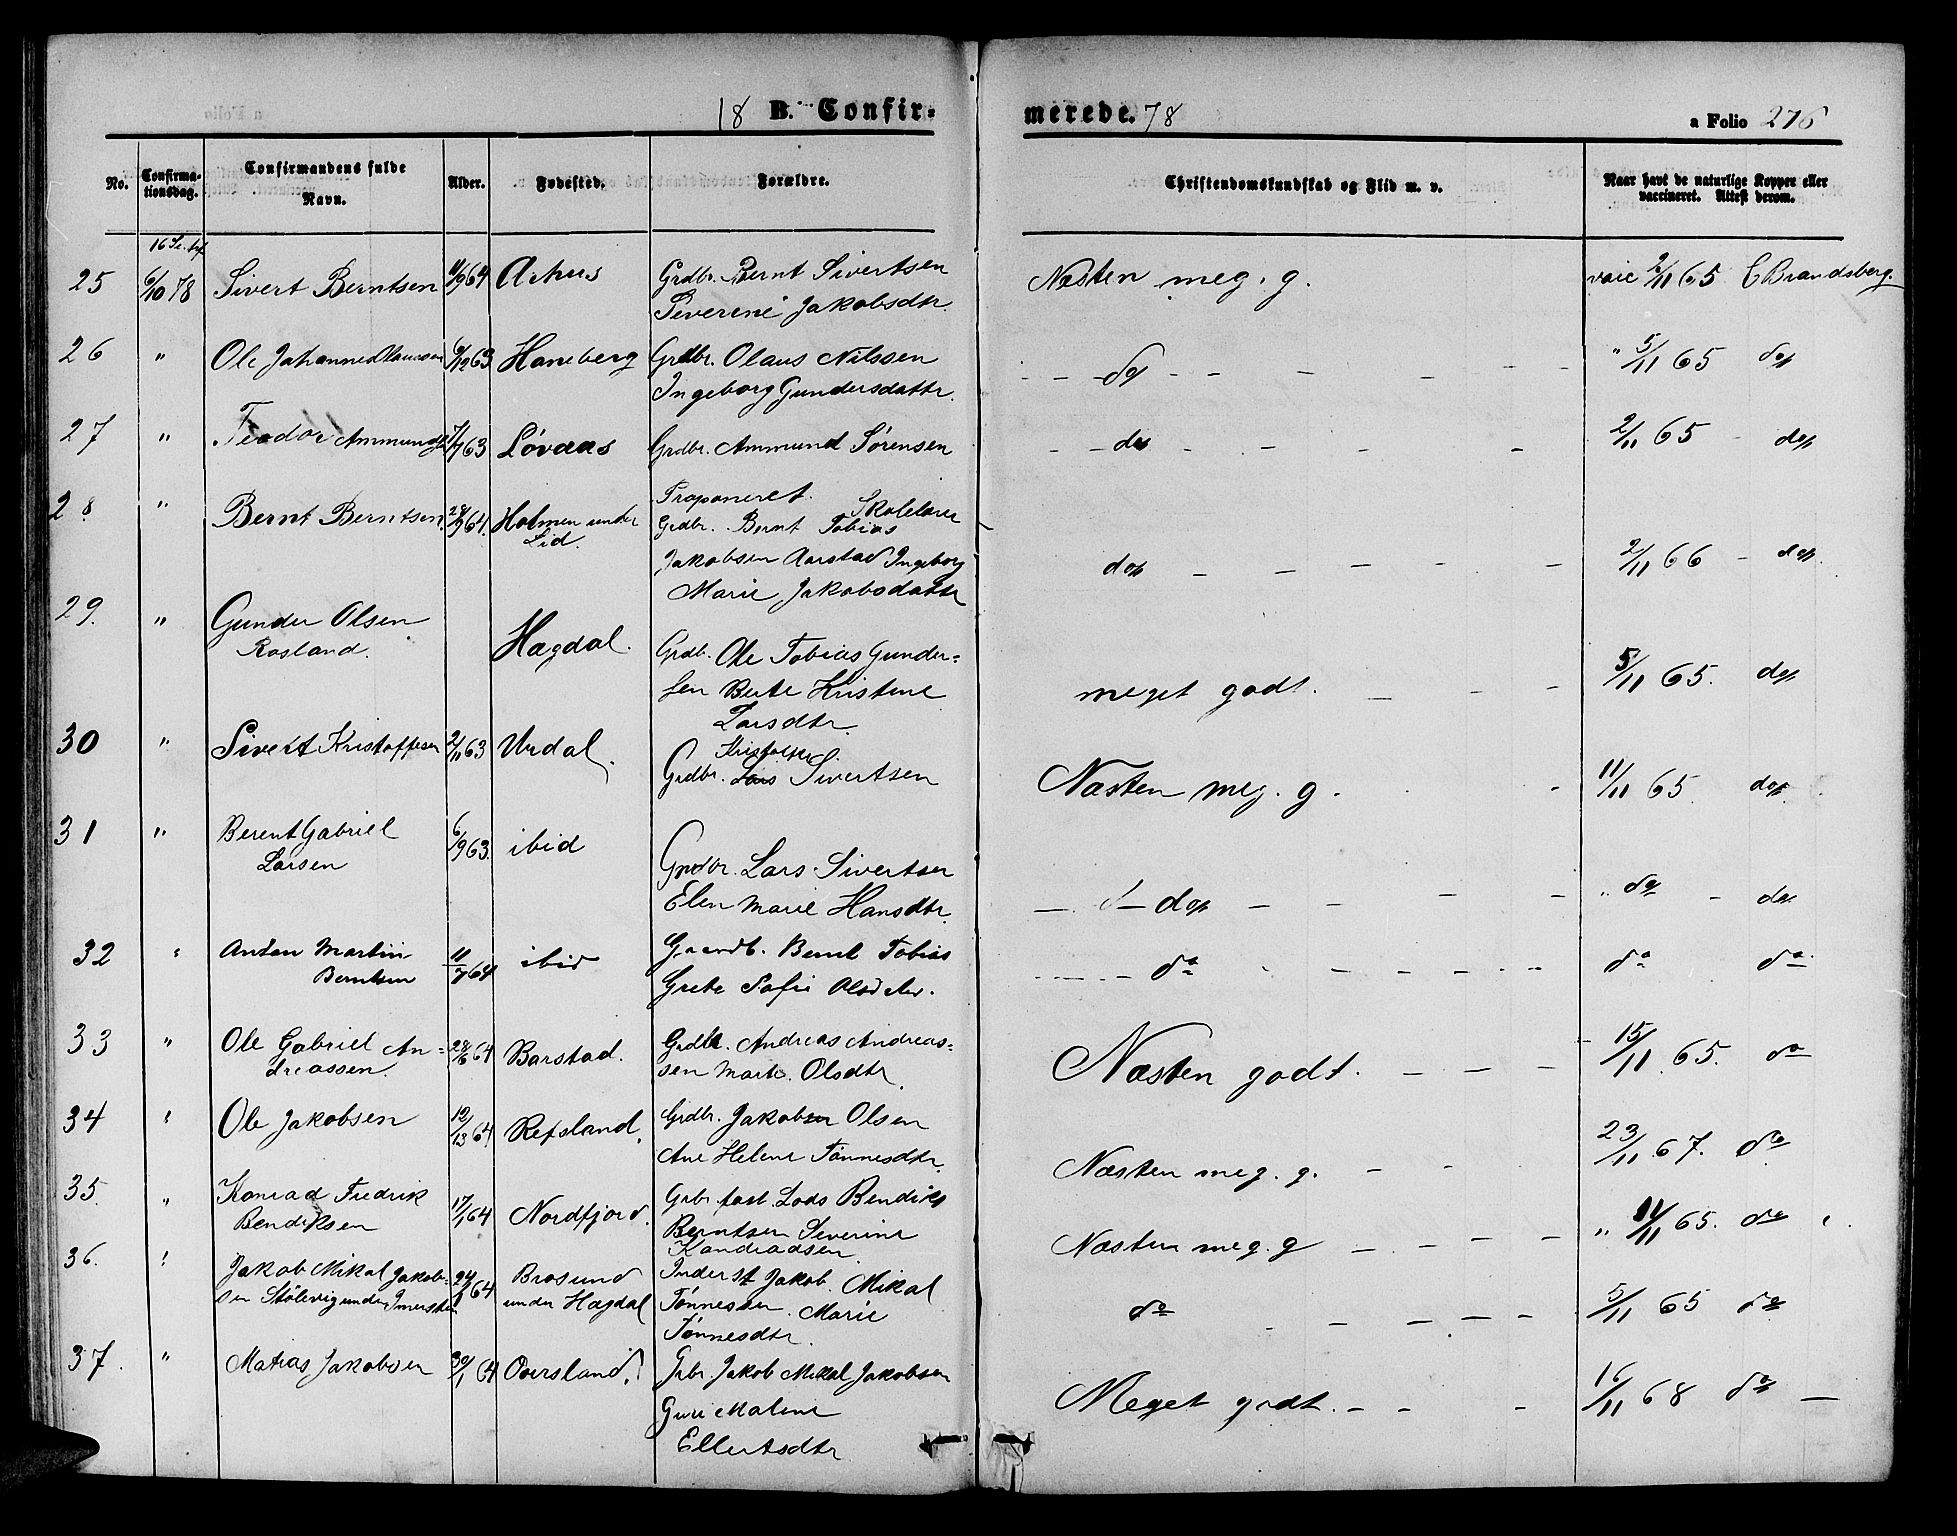 18 B. Confir- merede. 78 a Folio 276
No. Confirmationsdag. Confirmandens fulde Navn. Alder. Fødested. Forældre. Christendomskundskab og Flid m. v. Naar havt de naturlige Kopper eller vaccineret. Attest derom.
25 6/10 78 Sivert Berntsen 11/9 64 Grdbr. Bernt Sivertsen Næsten meg. g. 2/11 65 C Brandsberg
Severine Jakobsdtr.
26 " Ole Johannes Olaussen 63 Haneberg Grdbr. Olaus Nilssen do 5/11 65 do
Ingeborg Gundersdattr.
27 " Teodor 63 Løvaas Grdbr. Ammund Sørensen do 2/11 65 - do
28 " Bernt Berntsen 28/9 64. Holmen under Lid. Proponeret. Skolelærer
Grdbr. Bernt Tobias
Jakobsen Aarstad Ingeborg do 2/11 66 - do
Marie Jakobsdattr
29. " Gunder Olsen Rosland. Hægdal. Grdb. Ole Tobias Gunder-
sen Berte Kristine meget godt. 5/11 65. do
Larsdtr.
30 " Sivert Kristoffersen 2/11 63 Urdal. Kristoffer
Grdbr. Lars Sivertsen Næsten meg. g. 11/11 65 do
31 " Berent Gabriel Larsen 6/9 63. ibid Grdbr. Lars Sivertsen
Elen Marie Hansdtr. do " do - do
32 " Anton Martin Berntsen 11/7 64 ibid Gaardb. Bernt Tobias do do do
Grete Sofie Olsdtr.
33 " Ole Gabriel Andreassen. 28/6 64 Barstad. Grdbr. Andreas Andreas-
sen Marte Olsdtr. Næsten godt. 15/11 65. do
34 " Ole Jakobsen 12/13 64 Refsland. Grdbr. Jakobsen Olsen
Ane Helene Tønnesdtr. Næsten meg. g. 23/11 67. do
35. " Konrad Fredrik Bendiksen 17/1 64 Nordfjord. Grbr. fast. Lods Bendiks
Berntsen Severine
Næsten meg. g " 11/11 65. do
36. " Jakob Mikal Jakobsen Stølevig under 64 Brosund under Hægdal Inderst Jakob Mikal
Tønnessen. Marie do 5/11 65 do
Tønnesdtr.
37. " Matias Jakobsen 30/1 64 Oversland. Grbr. Jakob Mikal Jakobsen
Guri Malene Meget godt. 16/11 68 do -
Ellertsdtr